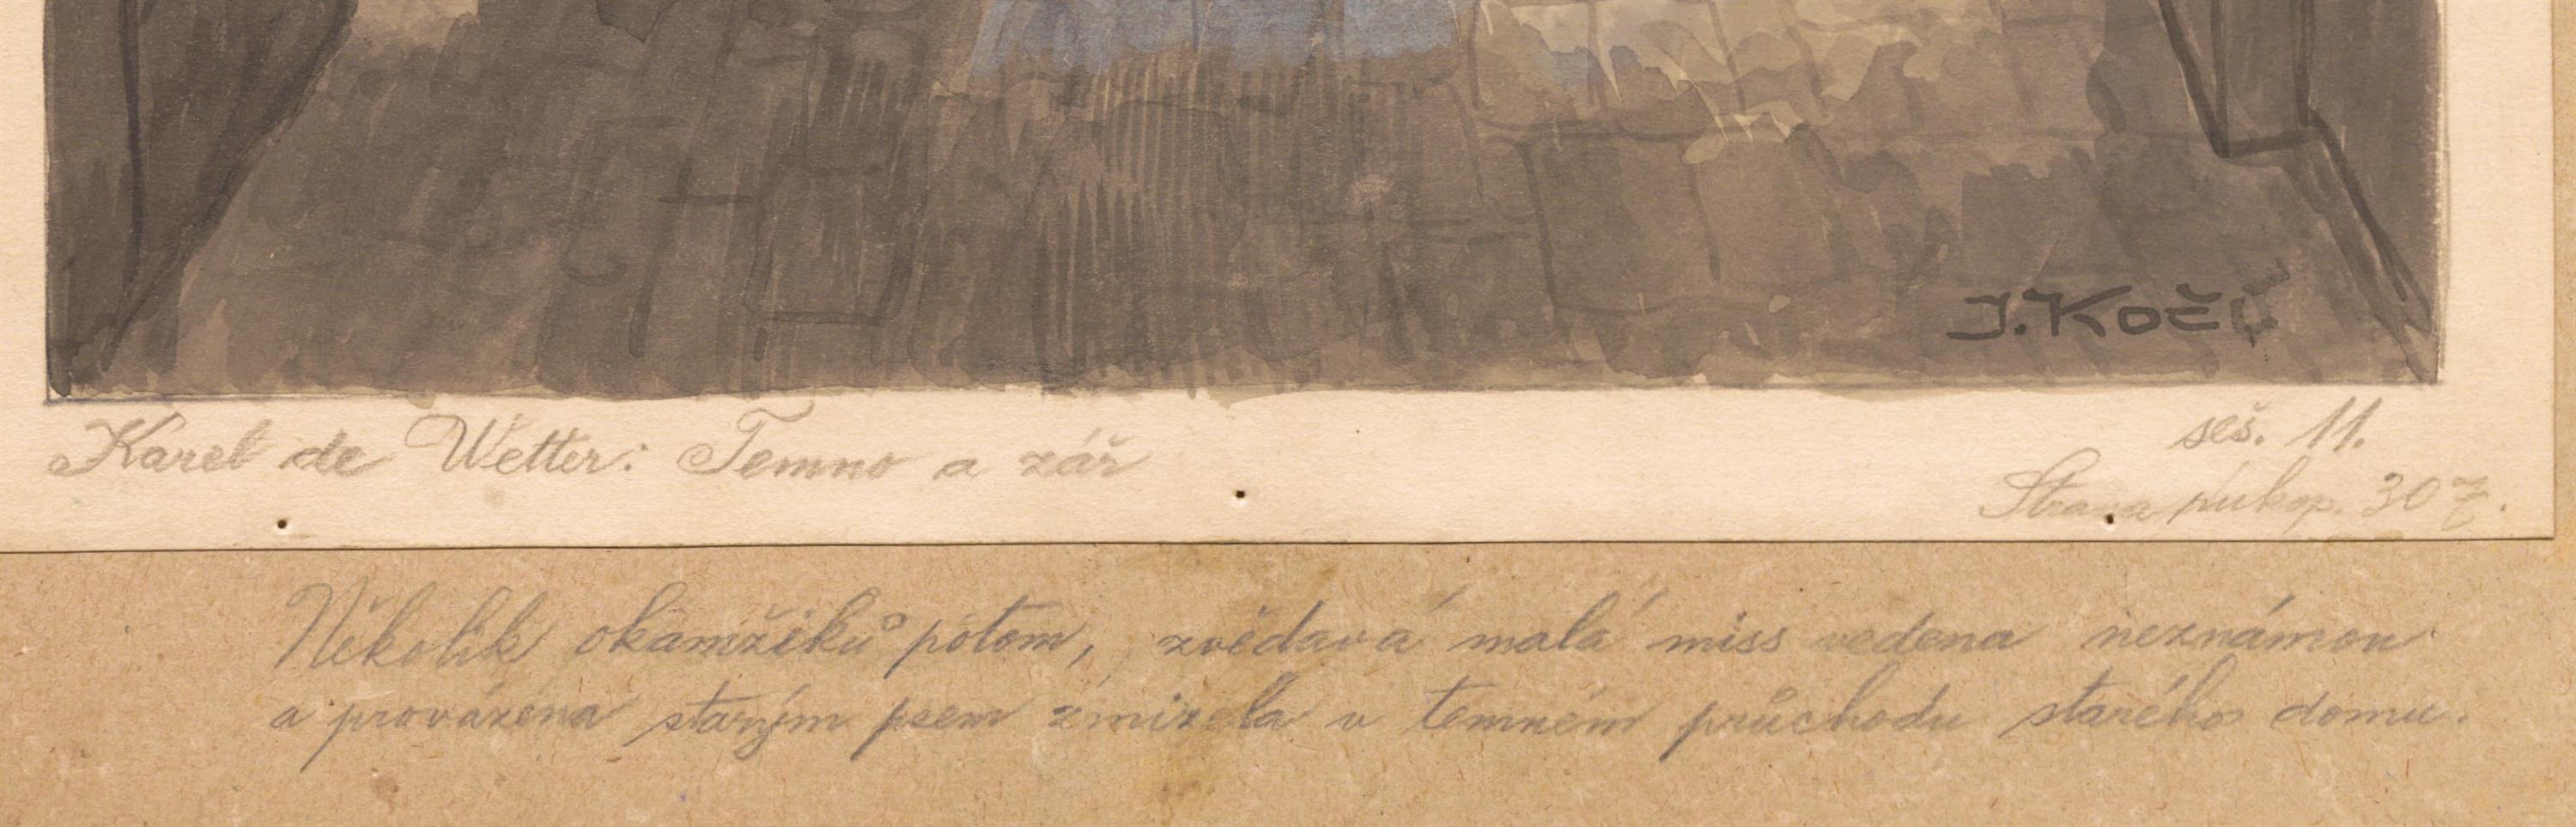 J. Kočí
Karel de Wetter: Temno a zář
seš. 11.
Strana rukop. 307.
Několik okamžiků potom, zvědavá malá miss vedena neznámou
a provázena starým psem zmizela v temném průchodu starého domu.